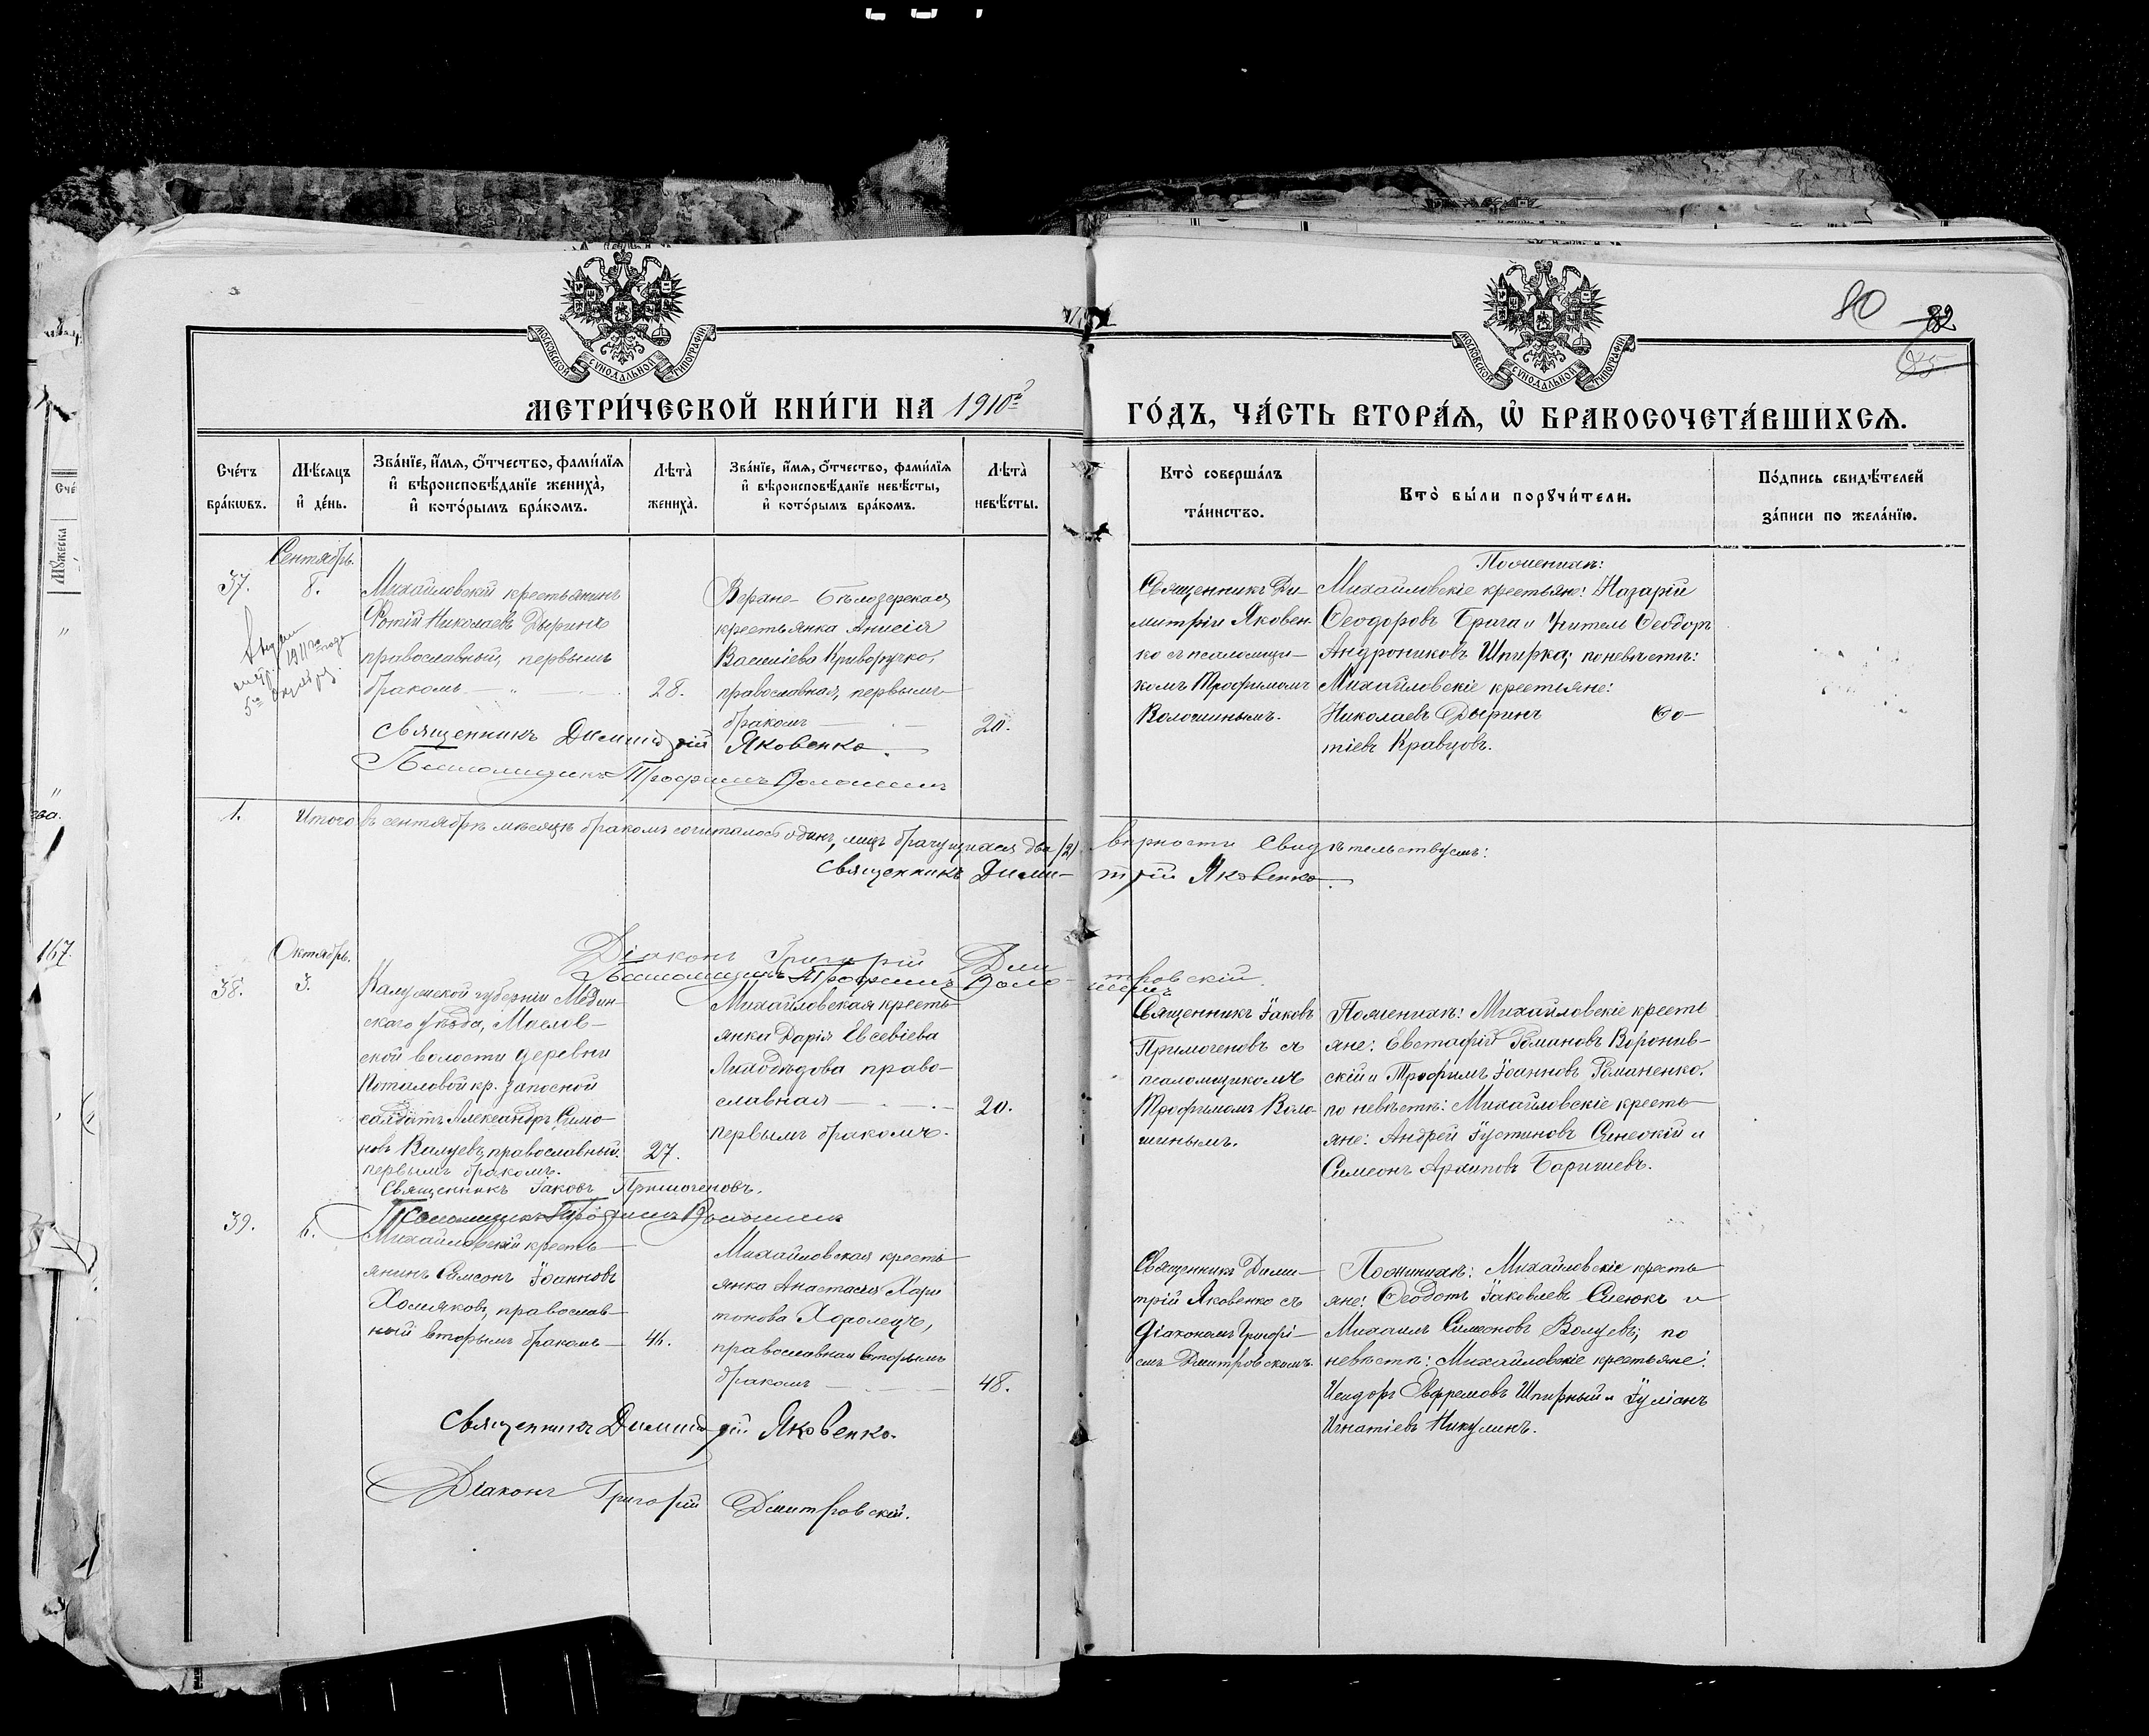 80 82
МОСКОВСКОЙ СѴНОДАЛЬНОЙ ТИПОГРАФІИ
МОСКОВСКОЙ СѴНОДАЛЬНОЙ ТИПОГРАФІИ
МЕТРИ́ЧЕСКОЙ КНИ́ГИ НА 1910й
ГО́ДЪ, ЧА́СТЬ ВТОРА́Ѧ, Ѡ҆ БРАКОСОЧЕТА́ВШИХСѦ.
Сче́тъ бра́кѡвъ.
Мѣ́сяцъ и҆ де́нь.
Зва́нїе, и҆́мя, ѻ҆́тчество, фами́лїя и҆ вѣроисповѣ́данїе жениха̀, и҆ кото́рымъ бра́комъ.
Лѣта̀ жениха̀.
Зва́нїе, и҆́мя, ѻ҆́тчество, фами́лїя и҆ вѣроисповѣ́данїе невѣ́сты, и҆ кото́рымъ бра́комъ.
Лѣта̀ невѣ́сты.
Кто̀ соверша́лъ та́инство.
Кто̀ бы́ли порꙋчи́тели.
По́дпись свидѣ́телей за́писи по жела́нїю.
Сентябрь.
37.
8.
Михайловскій крестьянинъ
Фотій Николаевъ Дыринъ
православный, первымъ
бракомъ
28.
Верхне-Бѣлозерская
крестьянка Анисія
Василіева Криворучко,
православная, первымъ
бракомъ
20.
Священникъ Ди-
митрій Яковен-
ко съ псаломщи-
комъ Трофимомъ
Волошинымъ.
По женихѣ:
Михайловскіе крестьяне: Назарій
Ѳеодоровъ Брага и учитель Ѳеодоръ
Андрониковъ Шпирка; по невѣстѣ:
Михайловскіе крестьяне:
Николаевъ Дыринъ Фо-
тіевъ Кравцовъ.
1911го года
Священникъ Димитрій Яковенко.
Псаломщикъ Трофимъ Волошинъ
1.
Итого въ сентябрѣ мѣсяцѣ бракомъ сочиталось одинъ, лицъ брачущихся два (2)
вѣрности свидѣтельствуемъ:
Священникъ Дими-
трій Яковенко.
Діаконъ Григорій Дми
тровскій.
Псаломщикъ Трофимъ Воло-
шинъ
Октябрь.
38.
3.
Калужской губерніи Медын-
скаго уѣзда, Маслов-
ской волости деревни
Потаповой кр. запасной
солдатъ Александръ Симо-
новъ Валуевъ, православный.
первымъ бракомъ.
27.
Михайловская кресть-
янка Дарія Евсевіева
Лиходѣдова право-
славная
первымъ бракомъ.
20.
Священникъ Іаковъ
Примогеновъ съ
псаломщикомъ
Трофимомъ Воло-
шинымъ.
По женихѣ: Михайловскіе кресть
яне: Евстафій Романовъ Воронив-
скій и Трофимъ Іоанновъ Романенко.
по невѣстѣ: Михайловскіе кресть-
яне: Андрей Іустиновъ Синескій и
Симеонъ Архиповъ Баришевъ.
Священникъ Іаковъ Примогеновъ.
Псаломщикъ Трофимъ Волошинъ
39.
Михайловскій кресть-
янинъ Самсонъ Іоанновъ
Хомяковъ, православ-
ный вторымъ бракомъ
Михайловская кресть-
янка Анастасія Хари
тонова Хоролецъ,
православная вторымъ
бракомъ
48.
Священникъ Дими-
трій Яковенко съ
діакономъ Григорі-
емъ Дмитровскимъ.
По женихѣ: Михайловскіе кресть
яне: Ѳеодотъ Іаковлевъ Слеюкъ и
Михаилъ Симеоновъ Валуевъ; по
невѣстѣ: Михайловскіе крестьяне:
Исидоръ Евфремовъ Шпирный и Іуліанъ
Игнатіевъ Никулинъ.
Священникъ Димитрій Яковенко.
Діаконъ Григорій Дмитровскій.
167.